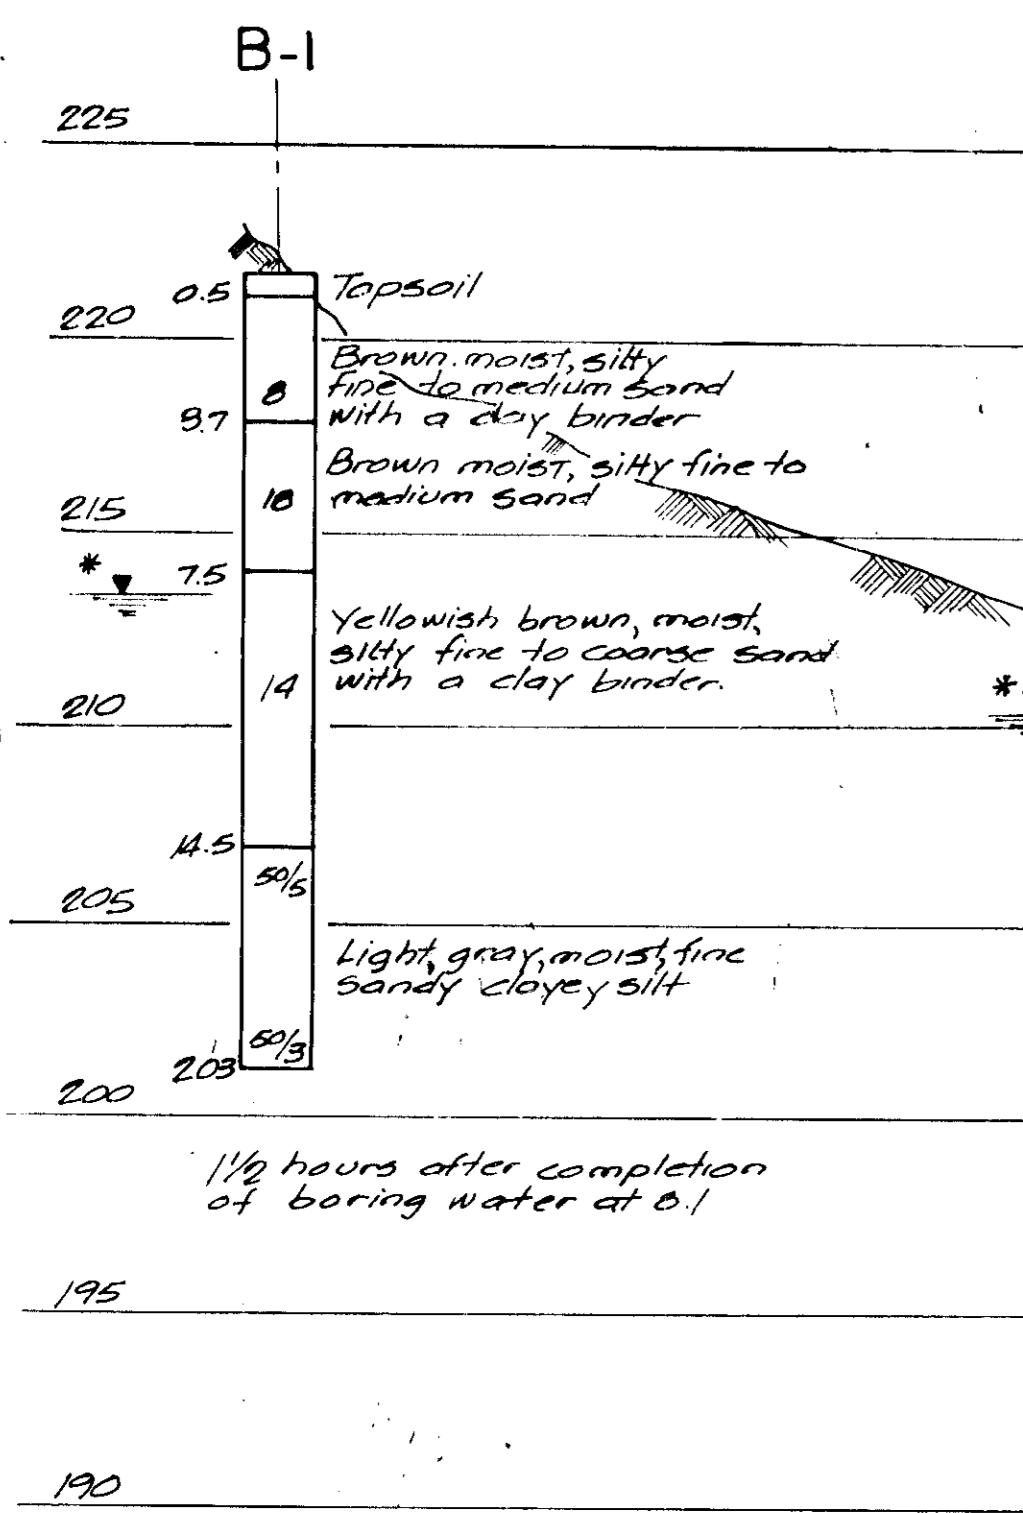 B-1
225
0.5 Topsoil
220
Brown moist, silty
fine to medium sand
8
3.7 with a clay binder
Brown moist, silty fine to
18 medium sand
215
*
7.5
Yellowish brown, moist,
silty fine to coarse sand
14 with a clay binder.
*
210
14.5
50/5
205
Light, gray, moist, fine
sandy clayey silt
50/3
20.3
200
1 1/2 hours after completion
of boring water at 8.1
195
190